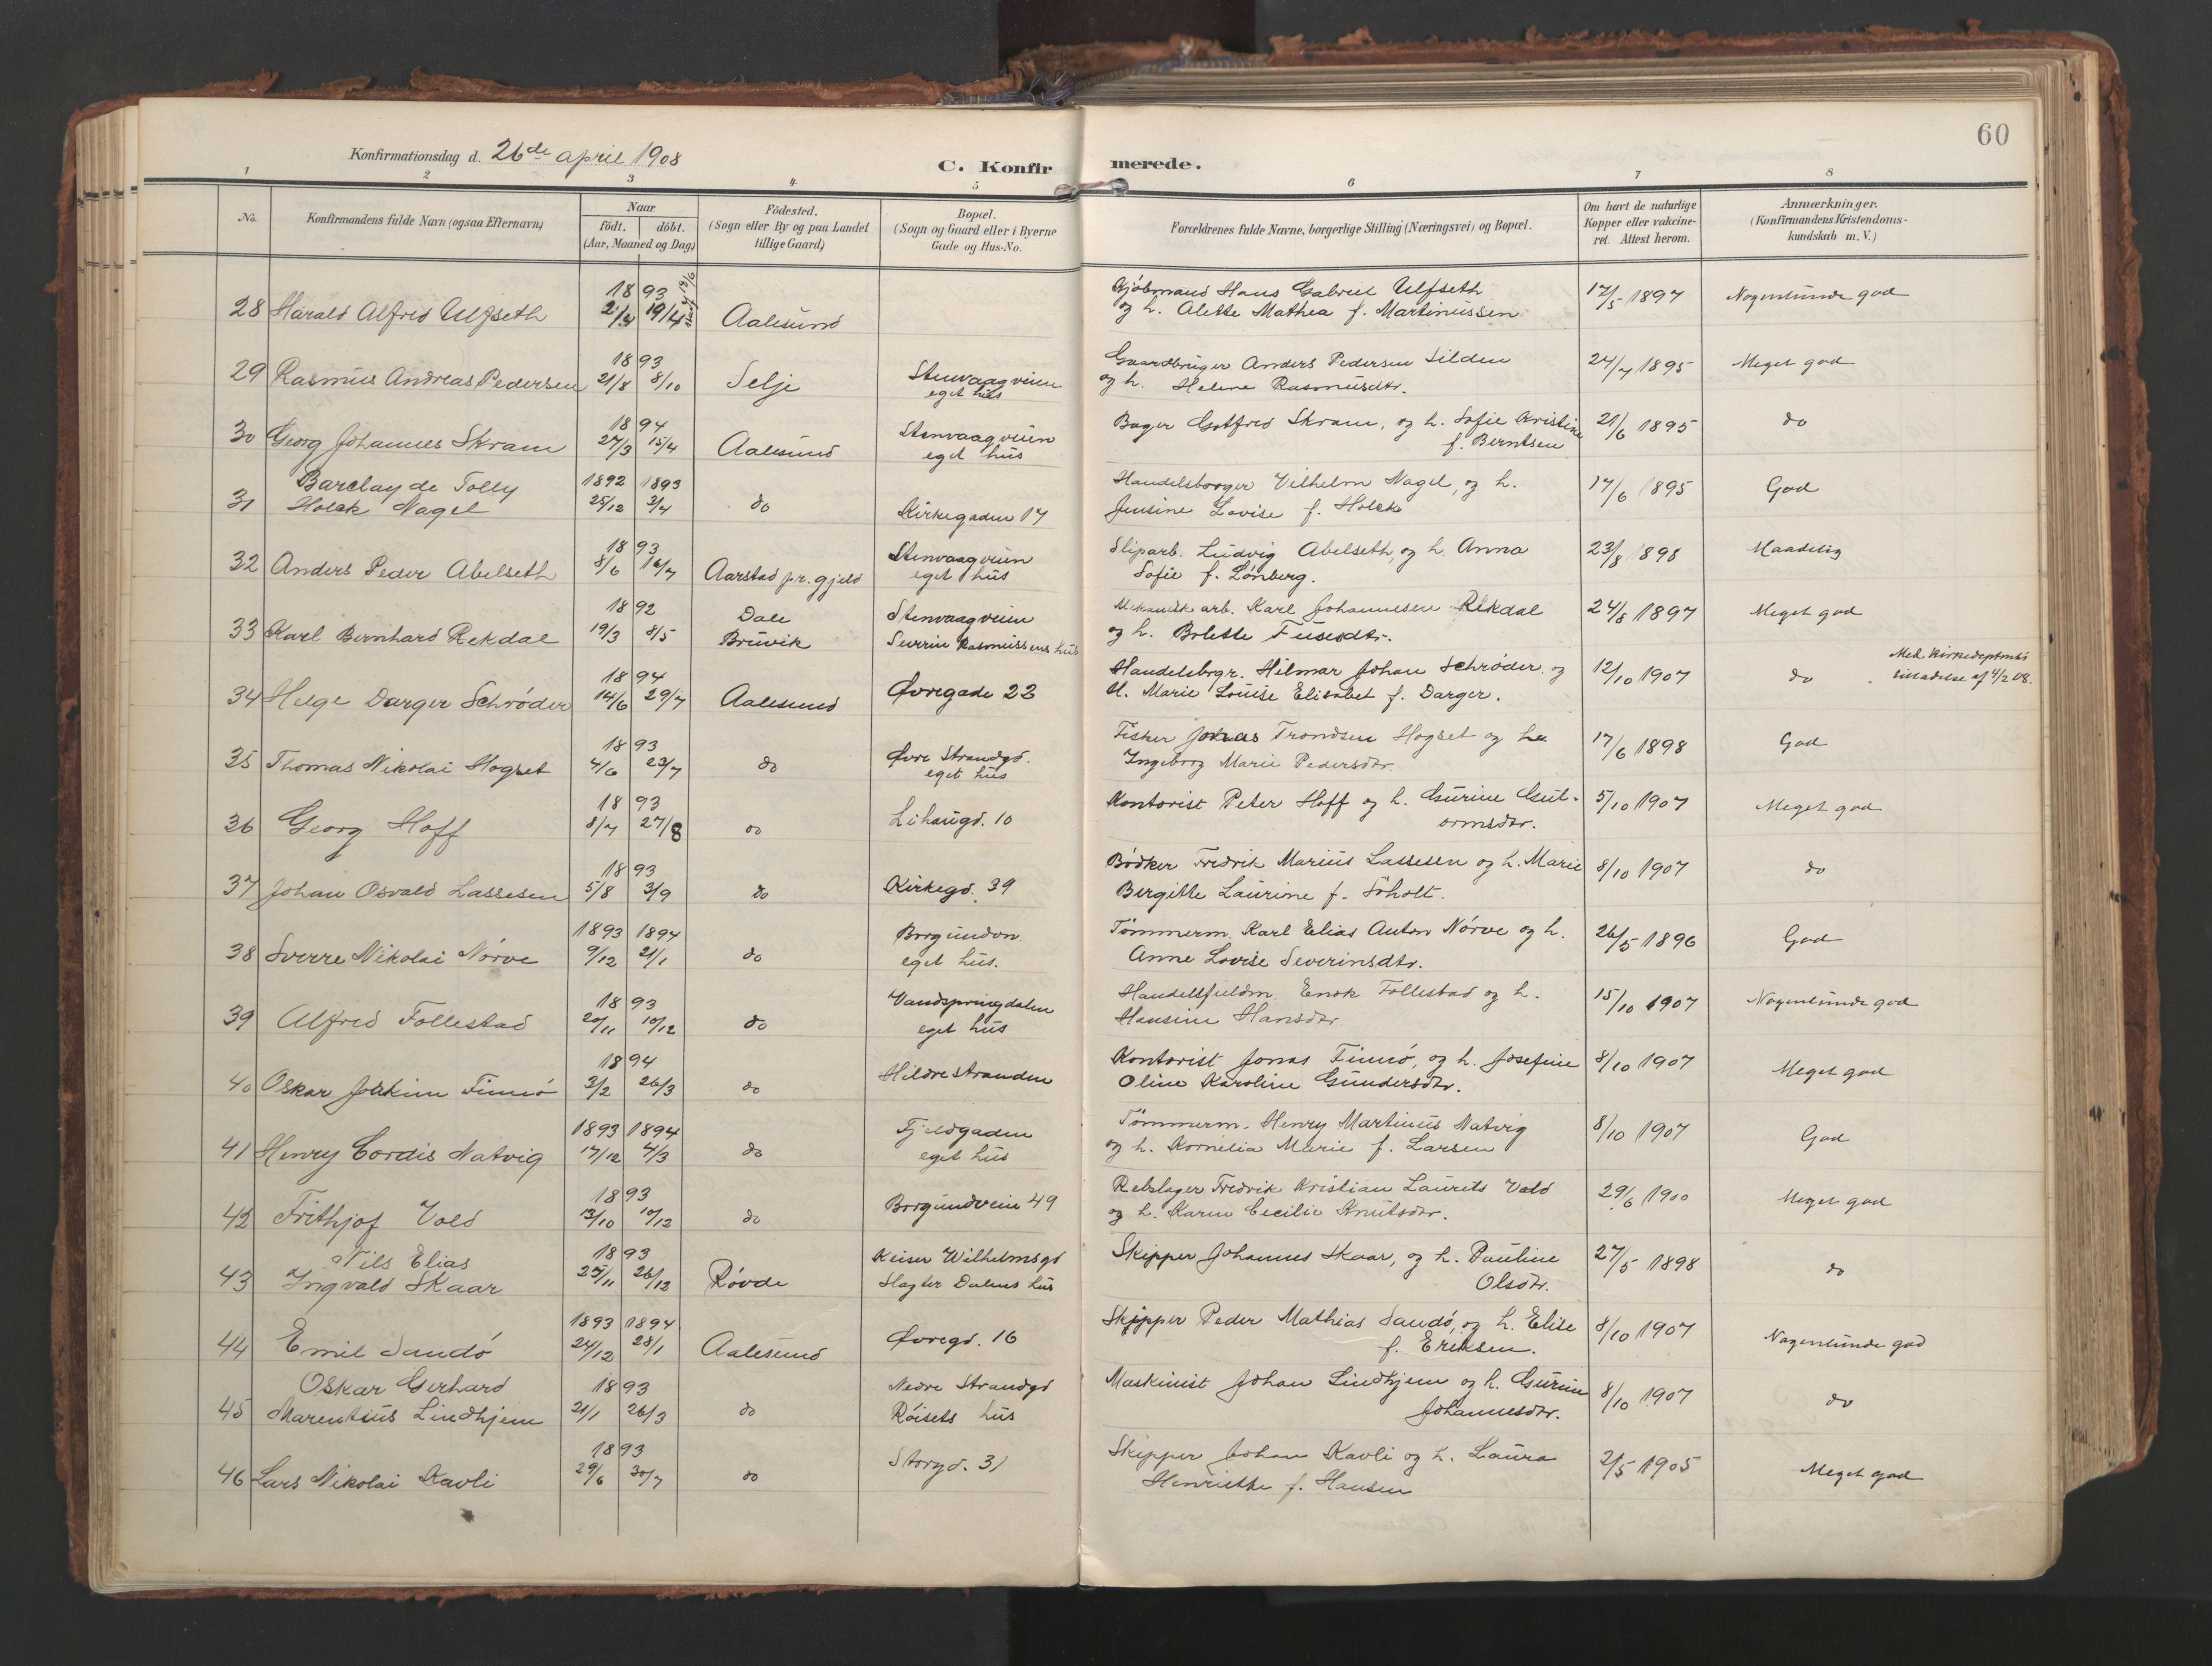 60
Konfirmationsdag d. 26de april 1908
C. Konfirmerede.
1 2 3 4 5 6 7 8
No. Konfirmandens fulde Navn (ogsaa Efternavn) Naar født. døbt. (Aar, Maaned og Dag) Fødested. (Sogn eller By og paa Landet tillige Gaard) Bopæl. (Sogn og Gaard eller i Byerne Gade og Hus-No. Forældrenes fulde Navne, borgerlige Stilling (Næringsvei) og Bopæl. Om havt de naturlige Kopper eller vakcineret. Attest herom. Anmærkninger. (Konfirmandens Kristendomskundskab m. V.)
28 Harald Alfred Ulfseth 1893 19/4 Aalesund Gjøbmand Hans Gabriel Ulfseth
og h. Alette Mathea f. Martinussen 17/5 1897 Nogenlunde god
29 Rasmus Andreas Pedersen 1893 21/8 8/10 Selje Stenvaagveien
eget hus Gaardbruger Anders Pedersen Silden
og h. Helene Rasmusdtr. 24/7 1895 Meget god
30 Georg Johannes Skram 1894 27/3 15/4 Aalesund Stenvaagveien
eget hus Bager Gotfred Skram, og h. Sofie Kristine
f. Berntsen 21/6 1895 do
31 Barclay de Tolly
Holck Nagel 1892 25/12 1893 3/4 do Kirkegaden 17 Handelsborger Vilhelm Nagel, og h.
Jensine Lovise f. Holck 17/6 1895 God
32 Anders Peder Abelseth 1893 8/6 16/7 Aarstad pr.gjeld Stenvaagveien
eget hus Sliparb. Ludvig Abelseth, og h. Anna
Sofie f. Lønberg. 23/8 1898 Maadelig
33 Karl Bernhard Rekdal 1892 19/3 8/5 Dale
Bruvik Stenvaagveien
Severin Rasmussens hus Mekanisk arb. Karl Johannesen Rekdal
og h. Bolette Fusesdtr. 24/8 1897 Meget god
34 Helge Darger Schrøder 1894 14/6 29/7 Aalesund Øvregade 22 Handelsbrgr. Hilmar Johan Schrøder og
H. Marie Louise Elisabet f. Darger. 12/10 1907 do Med Kirkedeptmts
tilladelse af 4/2 08.
35 Thomas Nikolai Hogset 1893 4/6 23/7 do Øvre Strandgd.
eget hus Fisker Jonas Trondsen Hogset og h.
Ingeborg Marie Pedersdtr. 17/6 1898 God
36 Georg Hoff 1893 8/7 27/8 do Lihaugd. 10 Kontorist Peter Hoff og h. Gurine Gutormsdtr. 5/10 1907 Meget god
37 Johan Osvald Lassesen 1893 5/8 3/9 do Kirkegd. 39 Bødker Fredrik Marius Lassesen og h. Marie
Bergitte Laurine f. Søholt. 8/10 1907 do
38 Sverre Nikolai Nørve 1893 9/12 1894 21/1 do Borgundvn.
eget hus. Tømmerm. Karl Elias Anton Nørve og h.
Anne Lovise Severinsdtr. 26/5 1896 God
39 Alfred Follestad 1893 20/11 10/12 do Vandspringdalen
eget hus Handelsfuldm. Enok Follestad og h.
Hansine Hansdtr 15/10 1907 Nogenlunde god
40 Oskar Joakim Finnø 1894 3/2 26/3 do Hildrestranden Kontorist Jonas Finnø, og h. Josefine
Oline Karoline Gundersdtr. 8/10 1907 Meget god
41 Henry Cordis Natvig 1893 17/12 1894 4/3 do Fjeldgaden
eget hus Tømmerm. Henry Martinus Natvig
og h. Kornelia Marie f. Larsen 8/10 1907 God
42 Frithjof Vold 1893 13/10 10/12 do Borgundveien 49 Rebslager Fredrik Kristian Laurits Vold
og h. Karen Cecilie Knutsdtr. 29/6 1900 Meget god
43 Nils Elias
Ingvald Skaar 1893 25/11 26/12 Røvde Keiser Wilhelmsgd
Slagter Dalens hus Skipper Johannes Skaar, og h. Pauline
Olsdtr. 27/5 1898 do
44 Emil Sandø 1893 24/12 1894 28/1 Aalesund Øvregd. 16 Skipper Peder Mathias Sandø, og h. Elise
f. Eriksen. 8/10 1907 Nogenlunde god
45 Oskar Gerhard
Marentius Lindhjem 1893 21/1 26/3 do Nedre Strandgd
Røisets hus Maskinist Johan Lindhjem og h. Gurine
Johannesdtr. 8/10 1907 do
46 Lars Nikolai Kavli 1893 29/6 30/7 do Storgd. 31 Skipper Johan Kavli og h. Laura
Henriette f. Hansen 2/5 1905 Meget god